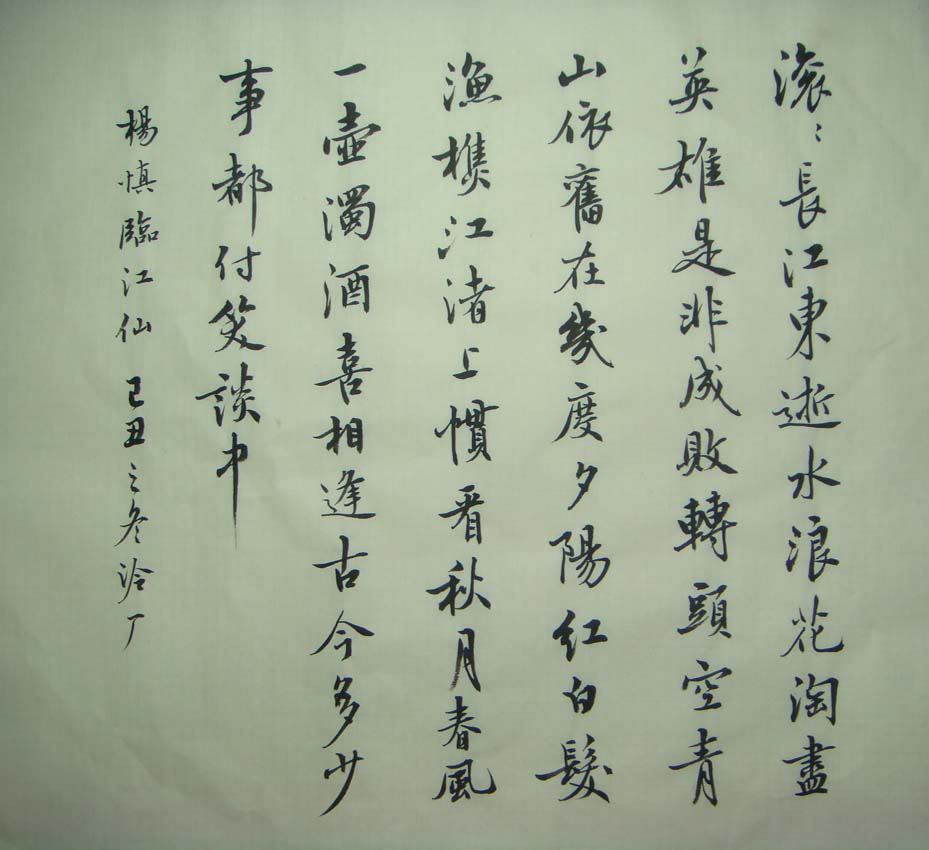 滚〻長江東逝水浪花淘盡
英雄是非成敗轉頭空青
山依舊在幾度夕陽紅白髮
漁樵江渚上慣看秋月春風
一壺濁酒喜相逢古今多少
事都付笑談中
楊慎臨江仙 己丑之冬泠厂